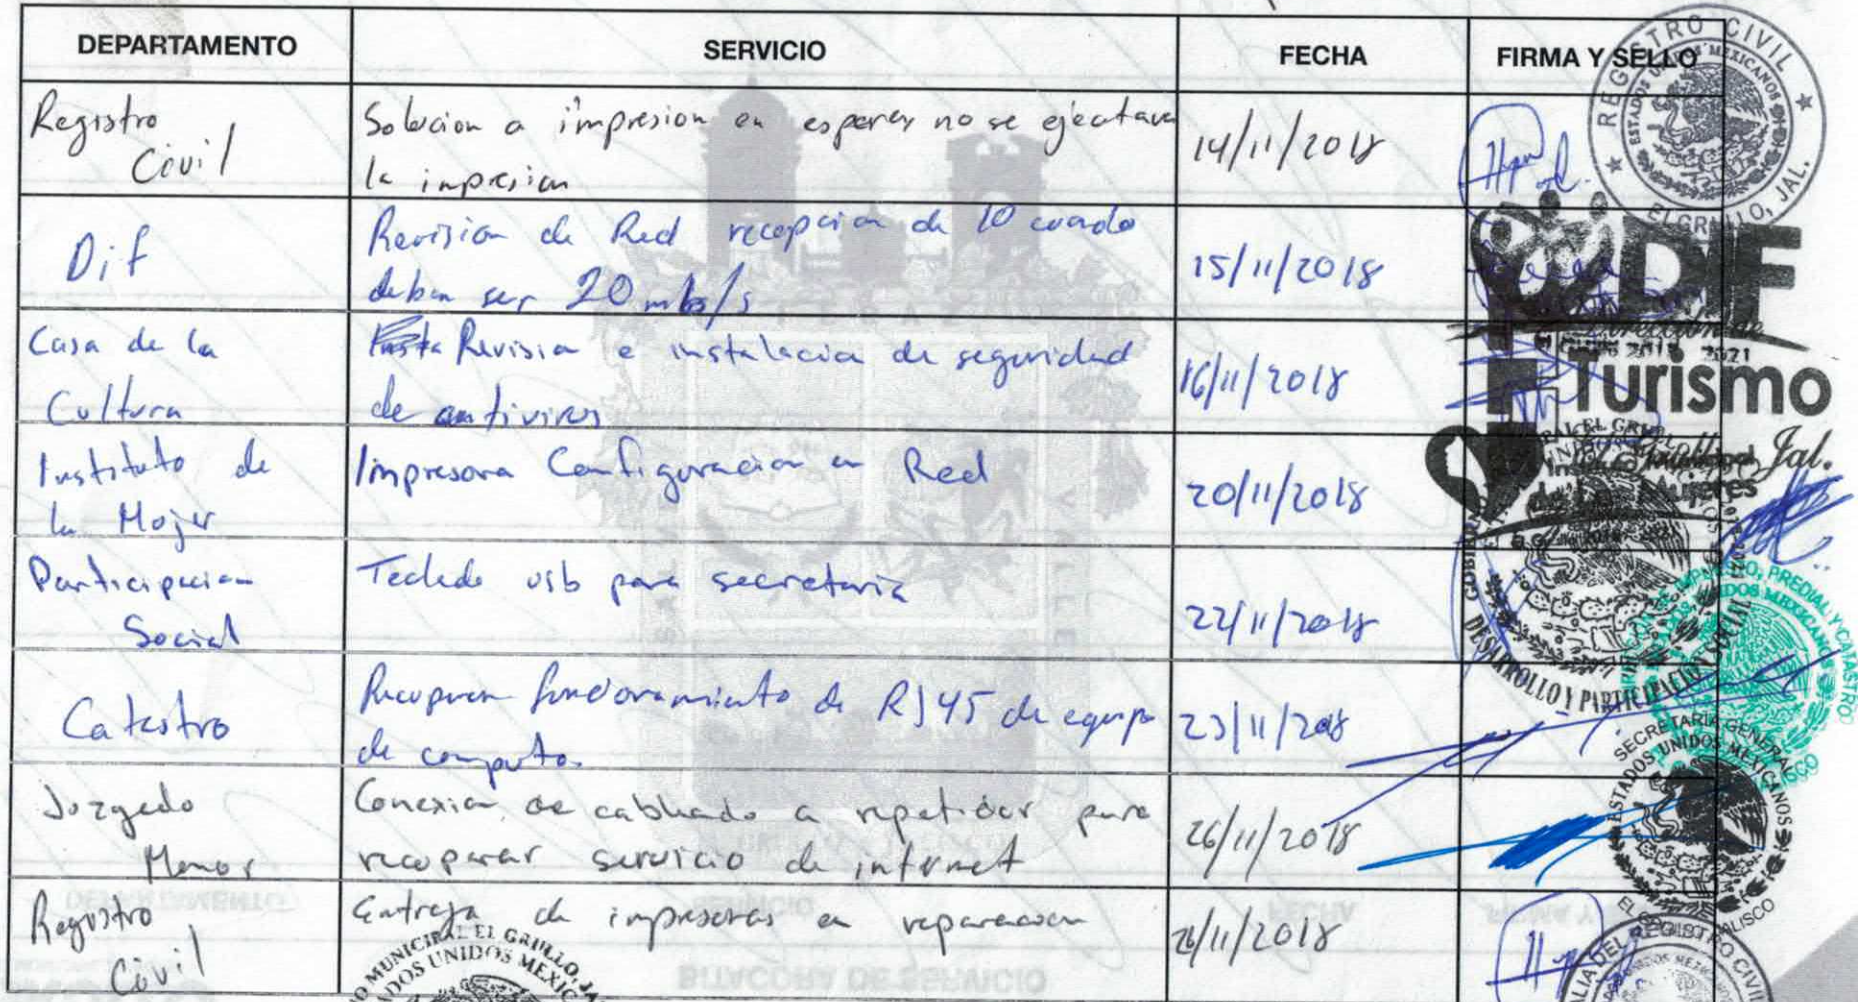 DEPARTAMENTO SERVICIO FECHA FIRMA Y SELLO
Registro
Civil
Solucion a impresion en esperar no se ejecutava
la impresion
14/11/2018
REGISTRO CIVIL
ESTADOS UNIDOS MEXICANOS
EL GRULLO, JAL.
Dif
Revision de Red recepcion de 10 cuando
deben ser 20 mb/s
15/11/2018
DIF
Casa de la
Cultura
Revision e instalacion de seguridad
de antivirus
16/11/2018
2021
Turismo
Instituto de
la Mojer
Impresora Configuracion en Red
20/11/2018
Jal.
Mujeres
Participacion
Social
Teclado usb para secretaria
22/11/2018
DESARROLLO Y PARTICIPACION SOCIAL
PREDIAL Y CATASTRO
Catastro
Recuperar funcionamiento de RJ45 de equipo
de computo
23/11/2018
SECRETARIA GENERAL
ESTADOS UNIDOS MEXICANOS
Jozgado
Menor
Conexion de cableado a repetidor para
recuperar servicio de internet
26/11/2018
EL GRULLO, JALISCO
Registro
Civil
Entrega de impresoras en reparacion
26/11/2018
MUNICIPAL EL GRULLO, JA
DOS UNIDOS MEXIC
REGISTRO CIVIL
BITACORA DE SERVICIO